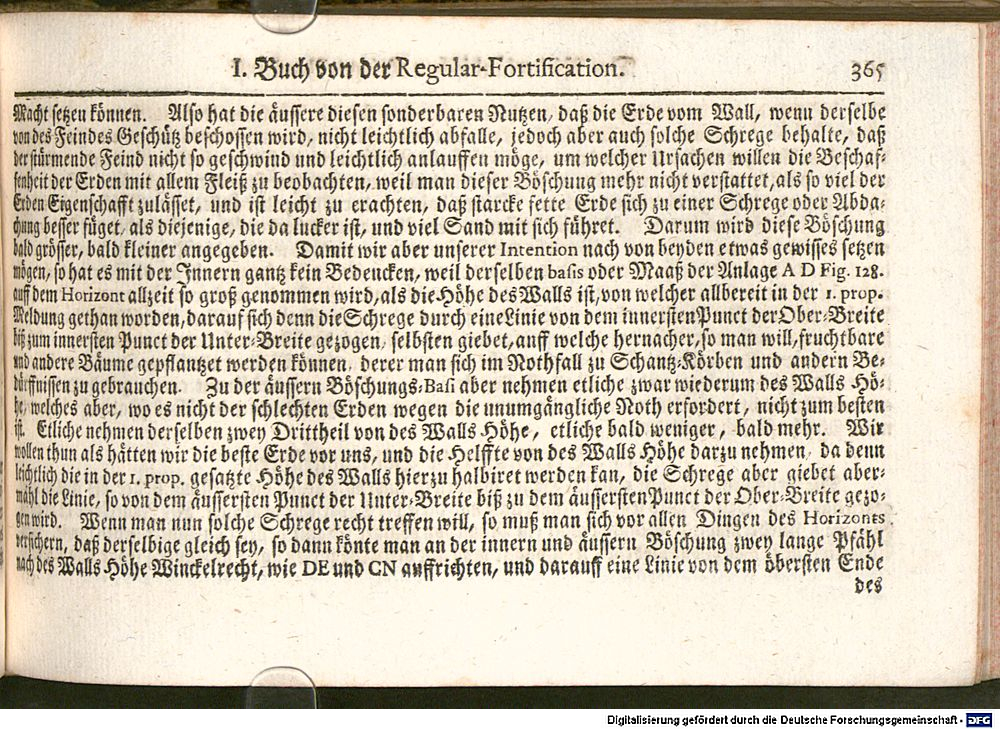 I. Buch von der Regular-Fortification. 365
Macht setzen können. Also hat die äussere diesen sonderbaren Nutzen, daß die Erde vom Wall, wenn derselbe
von des Feindes Geschütz beschossen wird, nicht leichtlich abfalle, jedoch aber auch solche Schrege behalte, daß
der stürmende Feind nicht so geschwind und leichtlich anlauffen möge, um welcher Ursachen willen die Beschaf-
fenheit der Erden mit allem Fleiß zu beobachten, weil man dieser Böschung mehr nicht verstattet, als so viel der
Erden Eigenschafft zulässet, und ist leicht zu erachten, daß starcke fette Erde sich zu einer Schrege oder Abda-
chung besser füget, als diejenige, die da lucker ist, und viel Sand mit sich führet. Darum wird diese Böschung
bald grösser, bald kleiner angegeben. Damit wir aber unserer Intention nach von beyden etwas gewisses setzen
mögen, so hat es mit der Innern gantz kein Bedencken, weil derselben basis oder Maaß der Anlage A D Fig. 128.
auff dem Horizont allzeit so groß genommen wird, als die Höhe des Walls ist, von welcher allbereit in der 1. prop.
Meldung gethan worden, darauf sich denn die Schrege durch eine Linie von dem innersten Punct der Ober-Breite
biß zum innersten Punct der Unter-Breite gezogen, selbsten giebet, auff welche hernacher, so man will, fruchtbare
und andere Bäume gepflantzet werden können, derer man sich im Nothfall zu Schantz-Körben und andern Be-
dürffnissen zu gebrauchen. Zu der äussern Böschungs-Basi aber nehmen etliche zwar wiederum des Walls Hö-
he, welches aber, wo es nicht der schlechten Erden wegen die unumgängliche Noth erfordert, nicht zum besten
ist. Etliche nehmen derselben zwey Drittheil von des Walls Höhe, etliche bald weniger, bald mehr. Wir
wollen thun als hätten wir die beste Erde vor uns, und die Helffte von des Walls Höhe darzu nehmen, da denn
leichtlich die in der 1. prop. gesatzte Höhe des Walls hierzu halbiret werden kan, die Schrege aber giebet aber-
mahl die Linie, so von dem äussersten Punct der Unter-Breite biß zu dem äussersten Punct der Ober-Breite gezo-
gen wird. Wenn man nun solche Schrege recht treffen will, so muß man sich vor allen Dingen des Horizonts
versichern, daß derselbige gleich sey, so dann könte man an der innern und äussern Böschung zwey lange Pfähl
nach des Walls Höhe Winckelrecht, wie DE und CN auffrichten, und darauff eine Linie von dem öbersten Ende
des
Digitalisierung gefördert durch die Deutsche Forschungsgemeinschaft - DFG